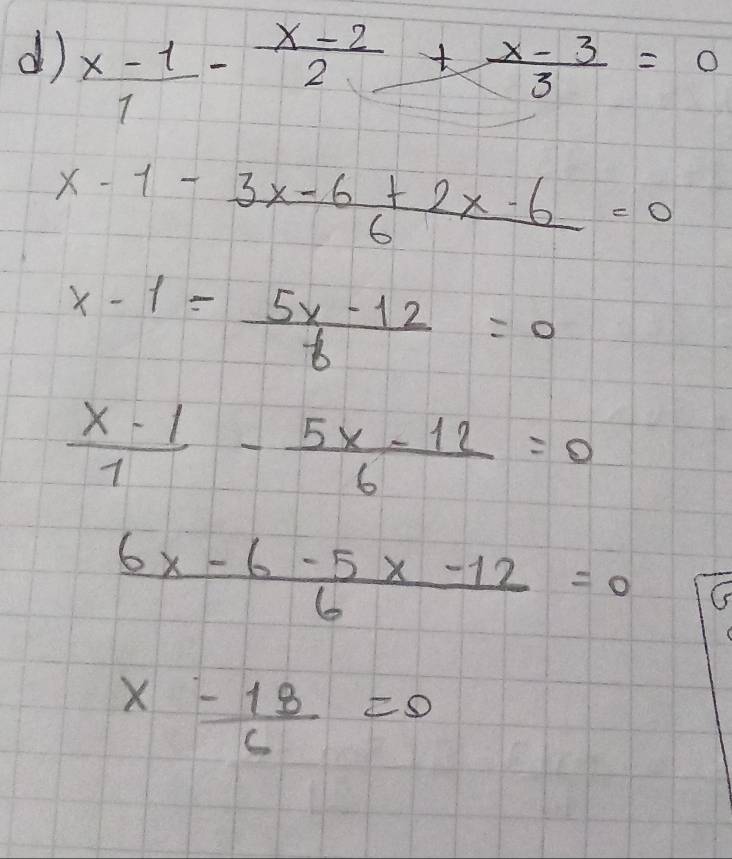 d) (x - 1)/1 - (x - 2)/2 + (x - 3)/3 = 0
x - 1 - (3x - 6 + 2x - 6)/6 = 0
x - 1 - (5x - 12)/6 = 0
(x - 1)/1 - (5x - 12)/6 = 0
(6x - 6 - 5x - 12)/6 = 0
x (- 18)/6 = 0